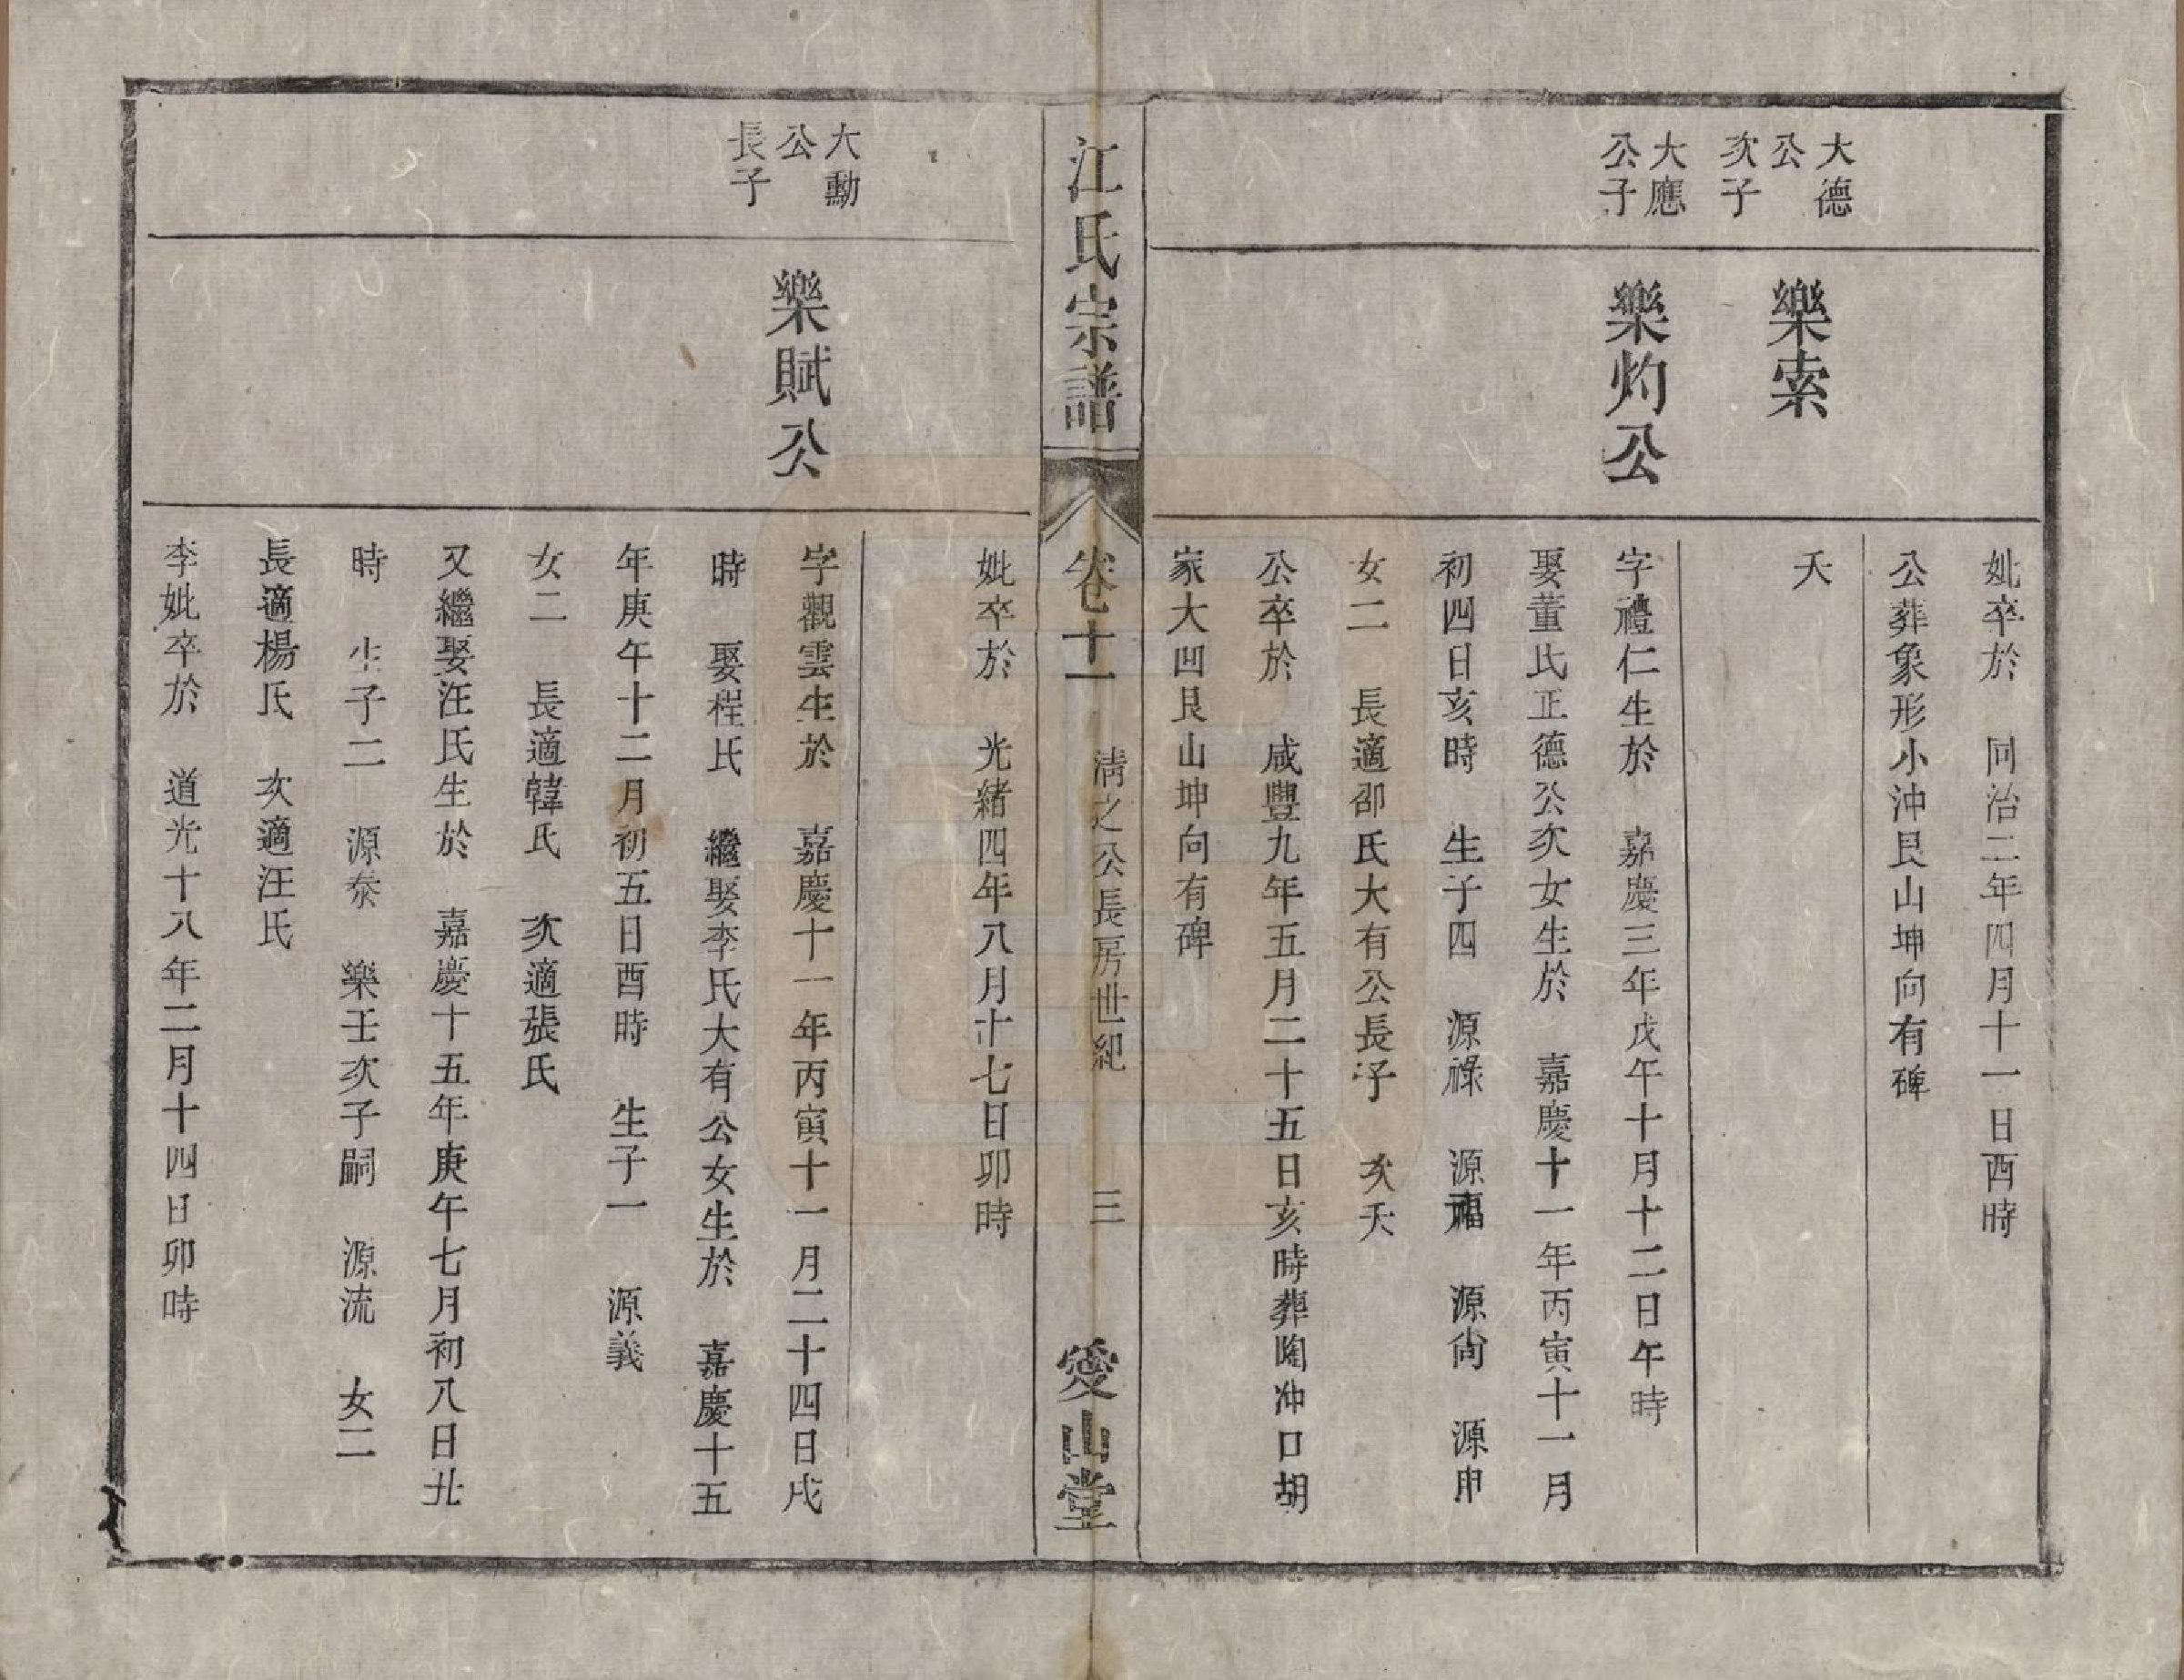 妣卒於 同治二年四月十一日酉時
公葬象形小沖艮山坤向有碑
大德
公
次子
樂索
夭
大應
公子
樂灼公
字禮仁生於 嘉慶三年戊午十月十二日午時
娶董氏正德公次女生於 嘉慶十一年丙寅十一月
初四日亥時 生子四 源祿 源福 源尙 源申
女二 長適邵氏大有公長子 次夭
公卒於 咸豐九年五月二十五日亥時葬陶冲口胡
家大凹艮山坤向有碑
江氏宗譜
卷十一 淸之公長房世紀 三
愛山堂
妣卒於 光緒四年八月十七日卯時
大勳
公
長子
樂賦公
字觀雲生於 嘉慶十一年丙寅十一月二十四日戌
時 娶程氏 繼娶李氏大有公女生於 嘉慶十五
年庚午十二月初五日酉時 生子一 源義
女二 長適韓氏 次適張氏
又繼娶汪氏生於 嘉慶十五年庚午七月初八日丑
時 生子二 源泰 樂壬次子嗣 源流 女二
長適楊氏 次適汪氏
李妣卒於 道光十八年二月十四日卯時